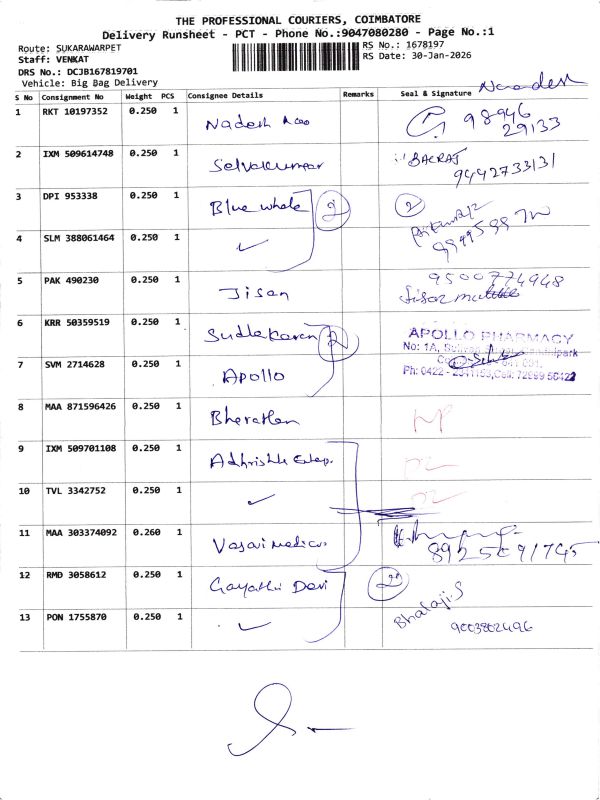 THE PROFESSIONAL COURIERS, COIMBATORE
Delivery Runsheet - PCT - Phone No.:9047080280 - Page No.:1
Route: SUKARAWARPET
RS No.: 1678197
Staff: VENKAT
RS Date: 30-Jan-2026
DRS No.: DCJB167819701
Vehicle: Big Bag Delivery
S No Consignment No Weight PCS Consignee Details Remarks Seal & Signature
1 RKT 10197352 0.250 1 Nadesh Rao 98946
29133
2 IXM 509614748 0.250 1 Selvakumar BALRAJ
9442733131
3 DPI 953338 0.250 1 Blue whale 2 2
4 SLM 388061464 0.250 1 ✓
5 PAK 490230 0.250 1 Jisan 9500774948
6 KRR 50359519 0.250 1 Sudhakaran 2 APOLLO PHARMACY
No: 1A,
7 SVM 2714628 0.250 1 Apollo
Ph: 0422 -
8 MAA 871596426 0.250 1 Bharathan
9 IXM 509701108 0.250 1 Adhrishh
10 TVL 3342752 0.250 1 ✓
11 MAA 303374092 0.260 1 Vasai Medicas
12 RMD 3058612 0.250 1 Gayathri Devi Bhalaji.S
13 PON 1755870 0.250 1 ✓ 9003802496